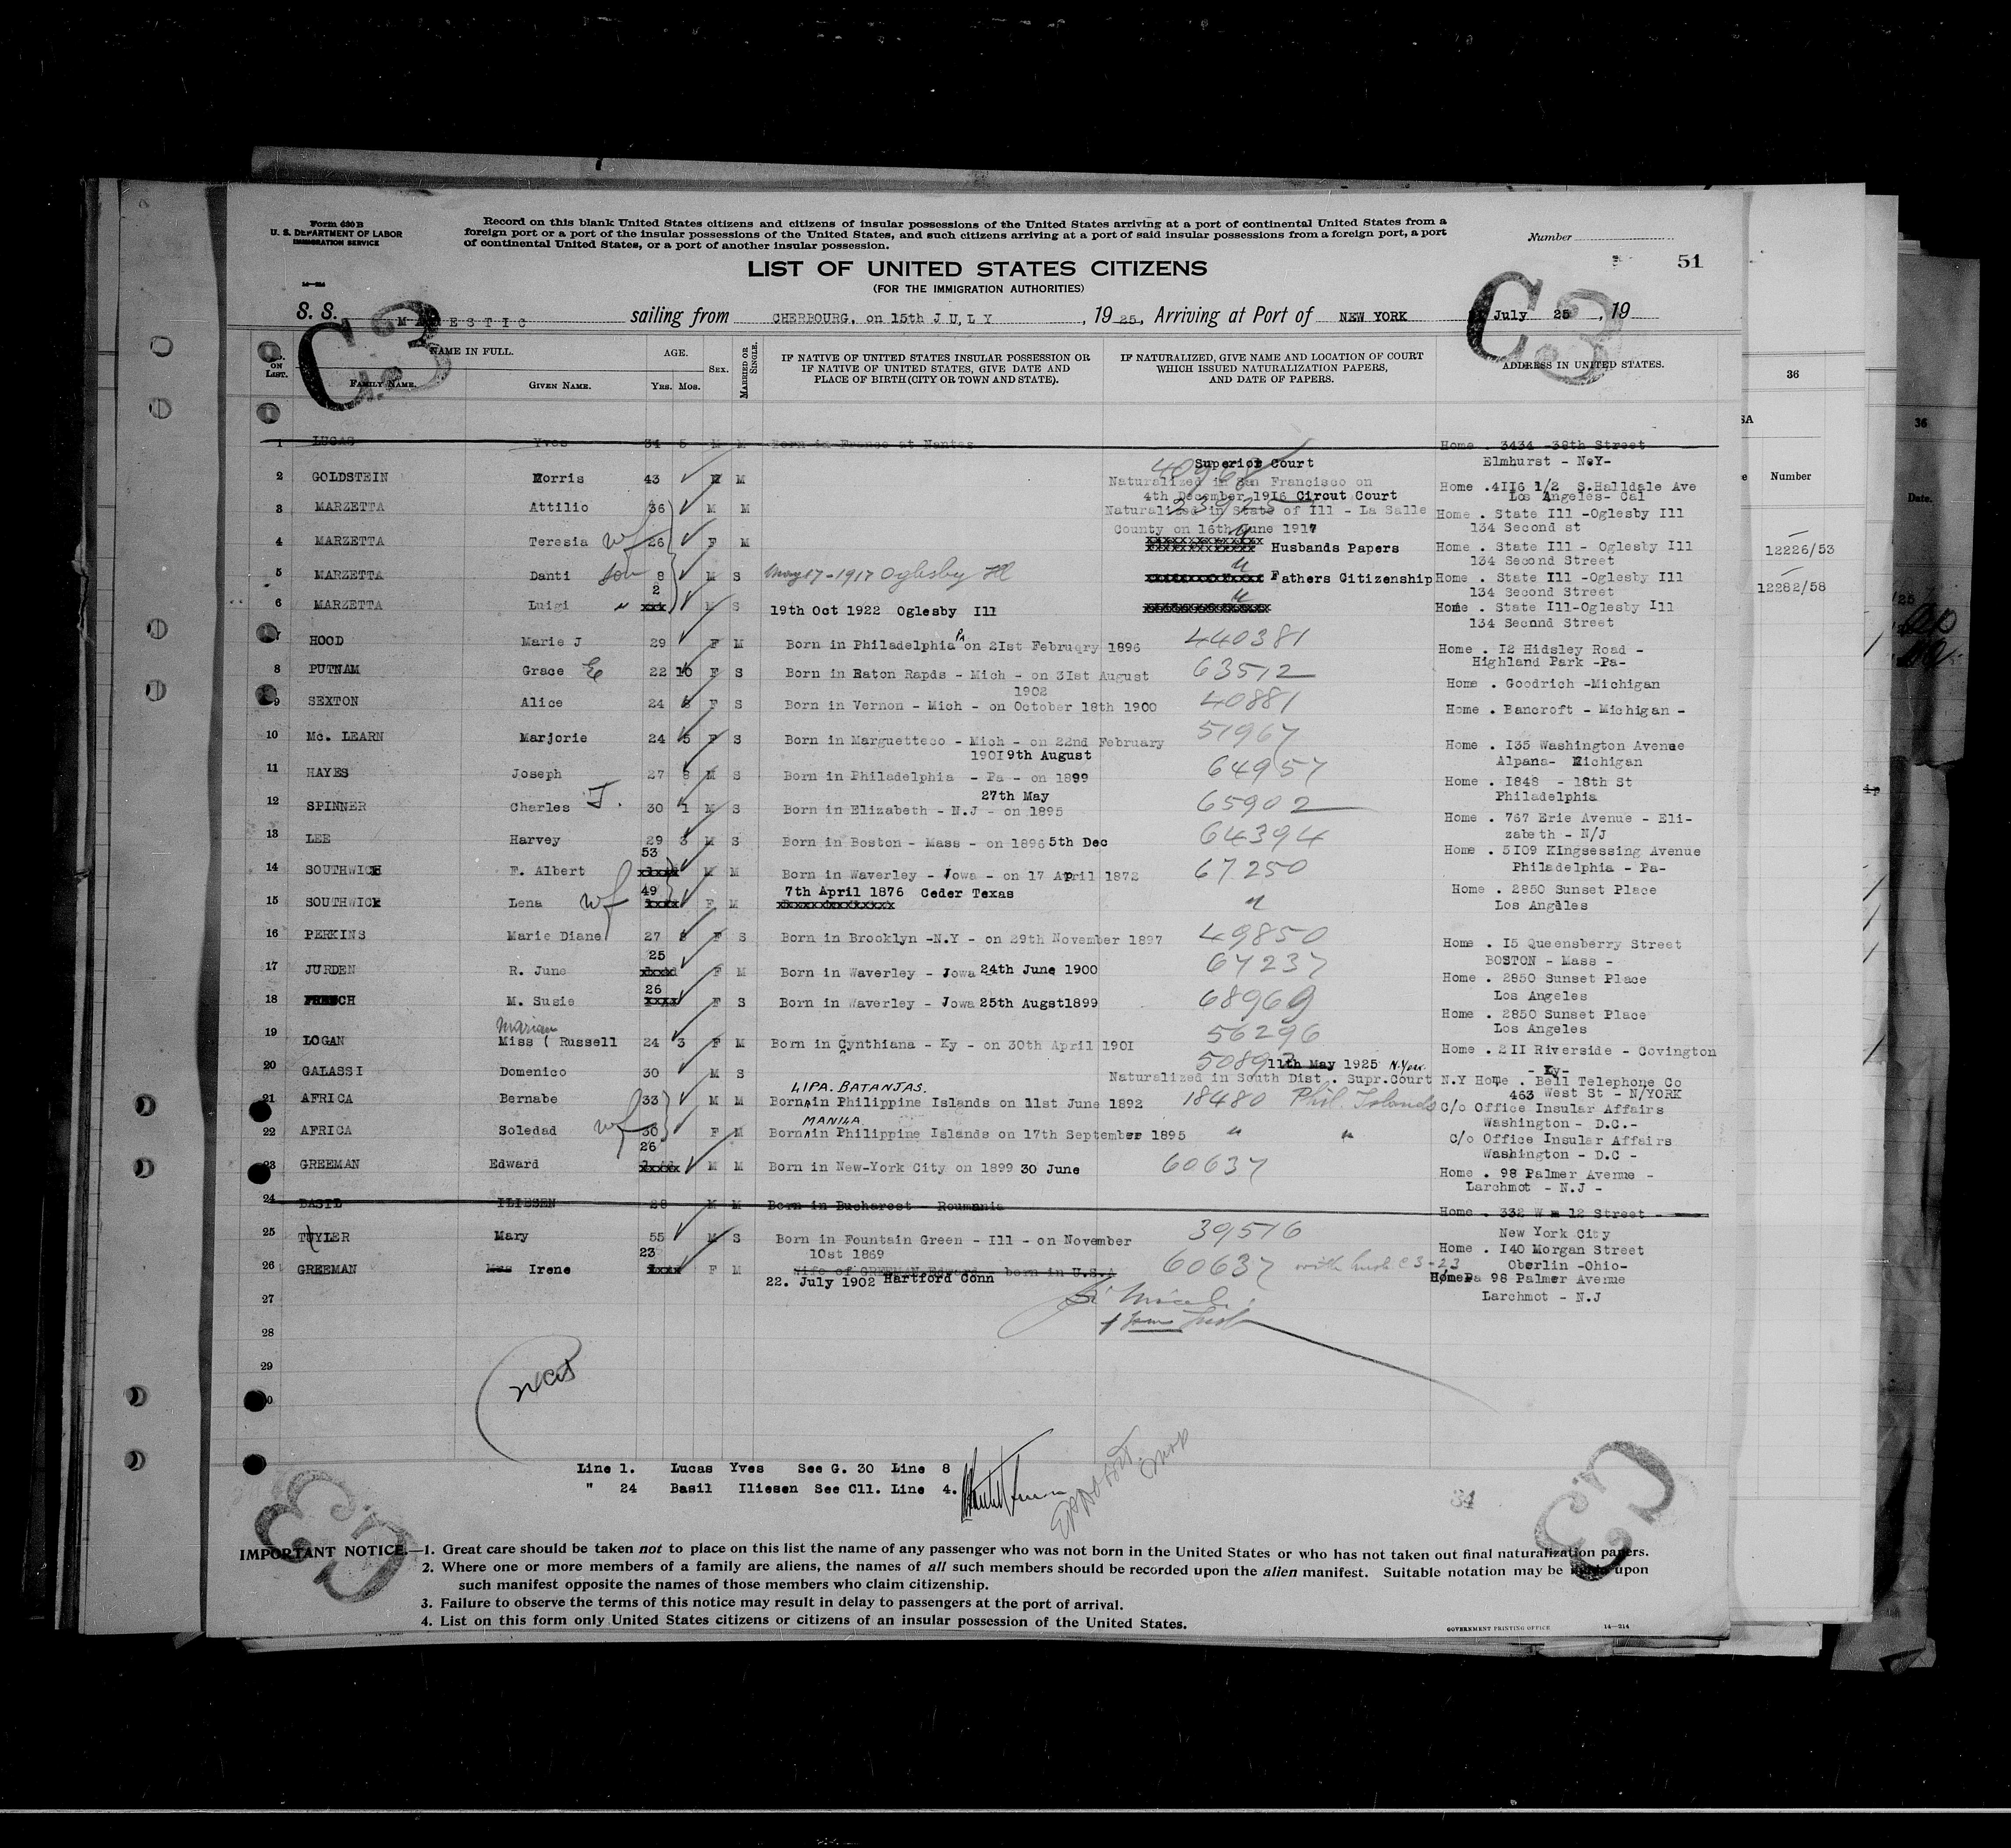 Form 630 B
U. S. DEPARTMENT OF LABOR
IMMIGRATION SERVICE
Record on this blank United States citizens and citizens of insular possessions of the United States arriving at a port of continental United States from a
foreign port or a port of the insular possessions of the United States, and such citizens arriving at a port of said insular possessions from a foreign port, a port
of continental United States, or a port of another insular possession.
Number
51
LIST OF UNITED STATES CITIZENS
(FOR THE IMMIGRATION AUTHORITIES)
14—214
S. S. MAJESTIC sailing from CHERBOURG, on 15th JULY, 1925, Arriving at Port of NEW YORK July 25, 19
C3
C3
No. ON LIST.
NAME IN FULL.
FAMILY NAME. GIVEN NAME.
AGE.
YRS. MOS.
SEX.
MARRIED OR SINGLE.
IF NATIVE OF UNITED STATES INSULAR POSSESSION OR
IF NATIVE OF UNITED STATES, GIVE DATE AND
PLACE OF BIRTH (CITY OR TOWN AND STATE).
IF NATURALIZED, GIVE NAME AND LOCATION OF COURT
WHICH ISSUED NATURALIZATION PAPERS,
AND DATE OF PAPERS.
ADDRESS IN UNITED STATES.
1 LUCAS Yves 34 5 M M Born in France at Nantes Home . 3434 -38th Street
Elmhurst - N.Y-
2 GOLDSTEIN Morris 43 M M Superior Court
Naturalized in San Francisco on
4th December 1916 Home .4II6 1/2 S.Halldale Ave
Los Angeles- Cal
3 MARZETTA Attilio 36 M M Circut Court
Naturalized in State of Ill - La Salle
County on 16th June 1917 Home . State Ill -Oglesby Ill
134 Second st
4 MARZETTA Teresia wf 26 F M Husbands Papers Home . State Ill - Oglesby Ill
134 Second Street
5 MARZETTA Danti son 8 M S May 17-1917 Oglesby Ill Fathers Citizenship Home . State Ill -Oglesby Ill
134 Second Street
6 MARZETTA Luigi " 2 M S 19th Oct 1922 Oglesby Ill Home . State Ill-Oglesby Ill
134 Secnnd Street
7 HOOD Marie J 29 F M Born in Philadelphia Pa on 2Ist February 1896 440381 Home . I2 Hidsley Road -
Highland Park -Pa-
8 PUTNAM Grace E 22 10 F S Born in Eaton Rapds - Mich - on 3Ist August
1902 63512 Home . Goodrich -Michigan
9 SEXTON Alice 24 8 F S Born in Vernon - Mich - on October 18th 1900 40881 Home . Bancroft - Michigan -
10 Mc. LEARN Marjorie 24 5 F S Born in Marguetteco - Mich - on 22nd February
190I 51967 Home . I35 Washington Avenue
Alpana- Michigan
11 HAYES Joseph 27 8 M S 9th August
Born in Philadelphia - Pa - on 1899 64957 Home . I848 - 18th St
Philadelphia
12 SPINNER Charles J. 30 1 M S 27th May
Born in Elizabeth - N.J - on 1895 65902 Home . 767 Erie Avenue - Eli-
zabeth - N/J
13 LEE Harvey 29 3 M S Born in Boston - Mass - on 1896 5th Dec 64394 Home . 5I09 Kingsessing Avenue
Philadelphia - Pa-
14 SOUTHWICK F. Albert 53 M M Born in Waverley - Jowa - on 17 April 1872 67250 Home . 2850 Sunset Place
Los Angeles
15 SOUTHWICK Lena wf 49 F M 7th April 1876 Ceder Texas "
16 PERKINS Marie Diane 27 8 F S Born in Brooklyn -N.Y - on 29th November 1897 49850 Home . I5 Queensberry Street
BOSTON - Mass -
17 JURDEN R. June 25 F M Born in Waverley - Jowa 24th June 1900 67237 Home . 2850 Sunset Place
Los Angeles
18 FRENCH M. Susie 26 F S Born in Waverley - Jowa 25th Augst1899 68969 Home . 2850 Sunset Place
Los Angeles
19 LOGAN Marian
Miss ( Russell 24 3 F M Born in Cynthiana - Ky - on 30th April 190I 56296 Home . 2II Riverside - Covington
- Ky-
20 GALASSI Domenico 30 M S 11th May 1925 N.York
Naturalized in South Dist . Supr.Court N.Y Home . Bell Telephone Co
463 West St - N/YORK
21 AFRICA Bernabe 33 M M LIPA. BATANJAS.
Born in Philippine Islands on 11st June 1892 18480 Phil. Islands C/o Office Insular Affairs
Washington - D.C.-
22 AFRICA Soledad wf 30 F M MANILA
Born in Philippine Islands on 17th September 1895 " " C/o Office Insular Affairs
Washington - D.C -
23 GREEMAN Edward 26 M M Born in New-York City on 1899 30 June 60637 Home . 98 Palmer Avenue -
Larchmot - N.J -
24 BASIL ILIESEN 28 M M Born in Bucharest - Roumania Home . 332 W - 12 Street -
New York City
25 TUYLER Mary 55 M S Born in Fountain Green - Ill - on November
10st 1869 39516 Home . I40 Morgan Street
Oberlin -Ohio-
26 GREEMAN Mrs Irene 23 F M Wife of GREEMAN Edward - born in U.S.A
22. July 1902 Hartford Conn 60637 with husb C 3-23 98 Palmer Avenue
Larchmot - N.J
27
28
29
30
Line 1. Lucas Yves See G. 30 Line 8
" 24 Basil Iliesen See C11. Line 4.
34
C3
C3
IMPORTANT NOTICE.—1. Great care should be taken not to place on this list the name of any passenger who was not born in the United States or who has not taken out final naturalization papers.
2. Where one or more members of a family are aliens, the names of all such members should be recorded upon the alien manifest. Suitable notation may be made upon
such manifest opposite the names of those members who claim citizenship.
3. Failure to observe the terms of this notice may result in delay to passengers at the port of arrival.
4. List on this form only United States citizens or citizens of an insular possession of the United States.
GOVERNMENT PRINTING OFFICE 14—214
36
Number
12226/53
12282/58
36
Date.